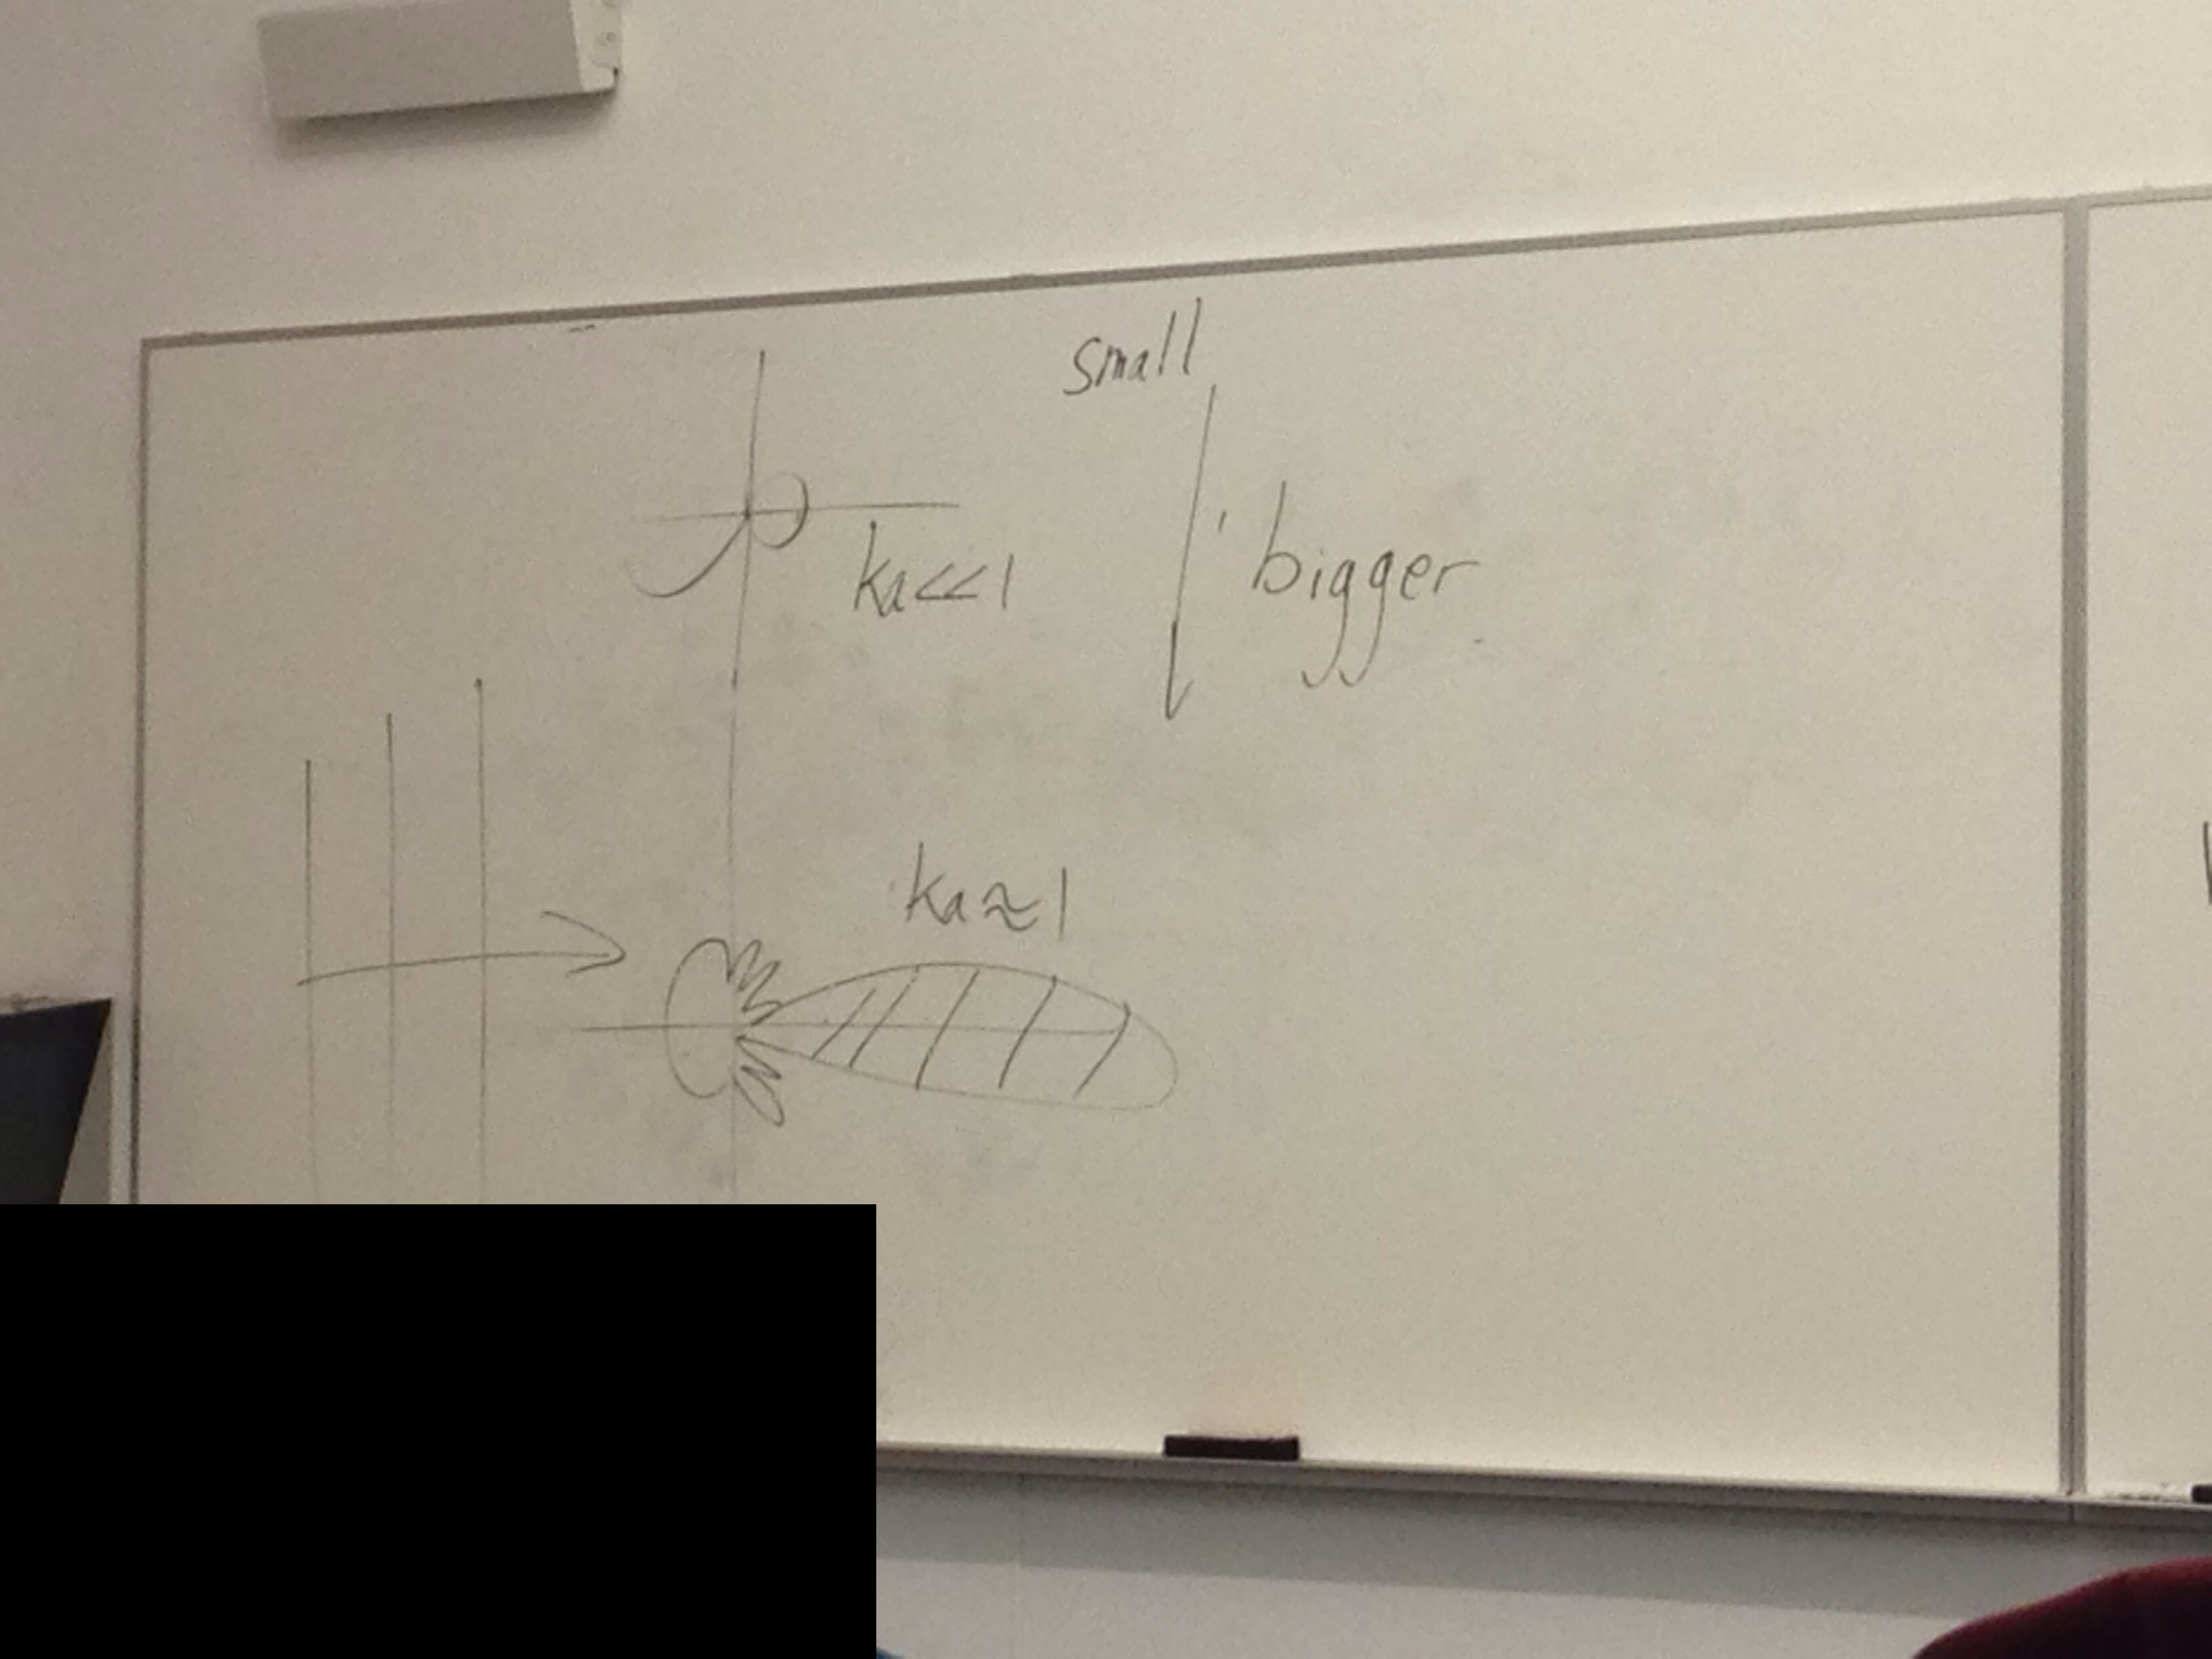 small
ka<<1
bigger
ka≈1